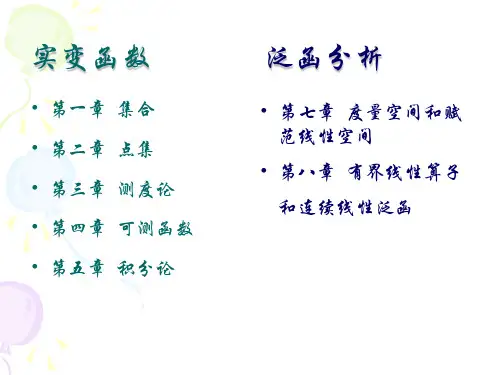 实变函数
• 第一章 集合
• 第二章 点集
• 第三章 测度论
• 第四章 可测函数
• 第五章 积分论
泛函分析
• 第七章 度量空间和赋
范线性空间
• 第八章 有界线性算子
和连续线性泛函